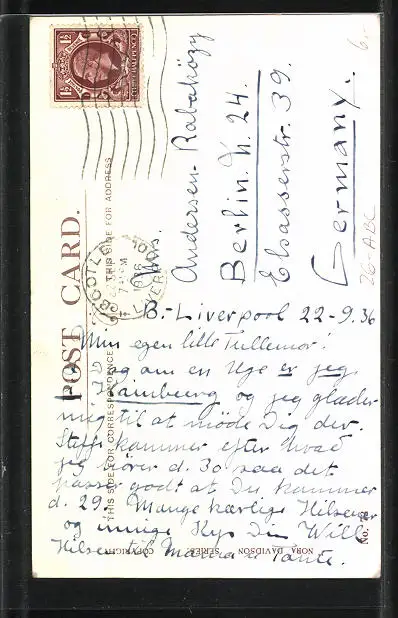 1½
POST CARD.
THIS SIDE FOR ADDRESS
THIS SIDE FOR CORRESPONDENCE
BOOTLE
LIVERPOOL
1936
Mrs.
Andersen-Rabaközy
Berlin. N. 24.
Elsasserstr. 39.
Germany.
B.-Liverpool 22-9.36
Min egen lille Tullemor!
og om en Uge er jeg i
Hamburg og jeg glæder
mig til at møde Dig der.
Steffi kommer efter hvad
jeg hører d. 30 saa det
passer godt at Du kommer
d. 29. Mange kærlige Hilsener
og mange Kys Din Willy
Hilsen til Mama & Tante.
NORA DAVIDSON SERIES COPYRIGHT
No.
26-ABC
6.-